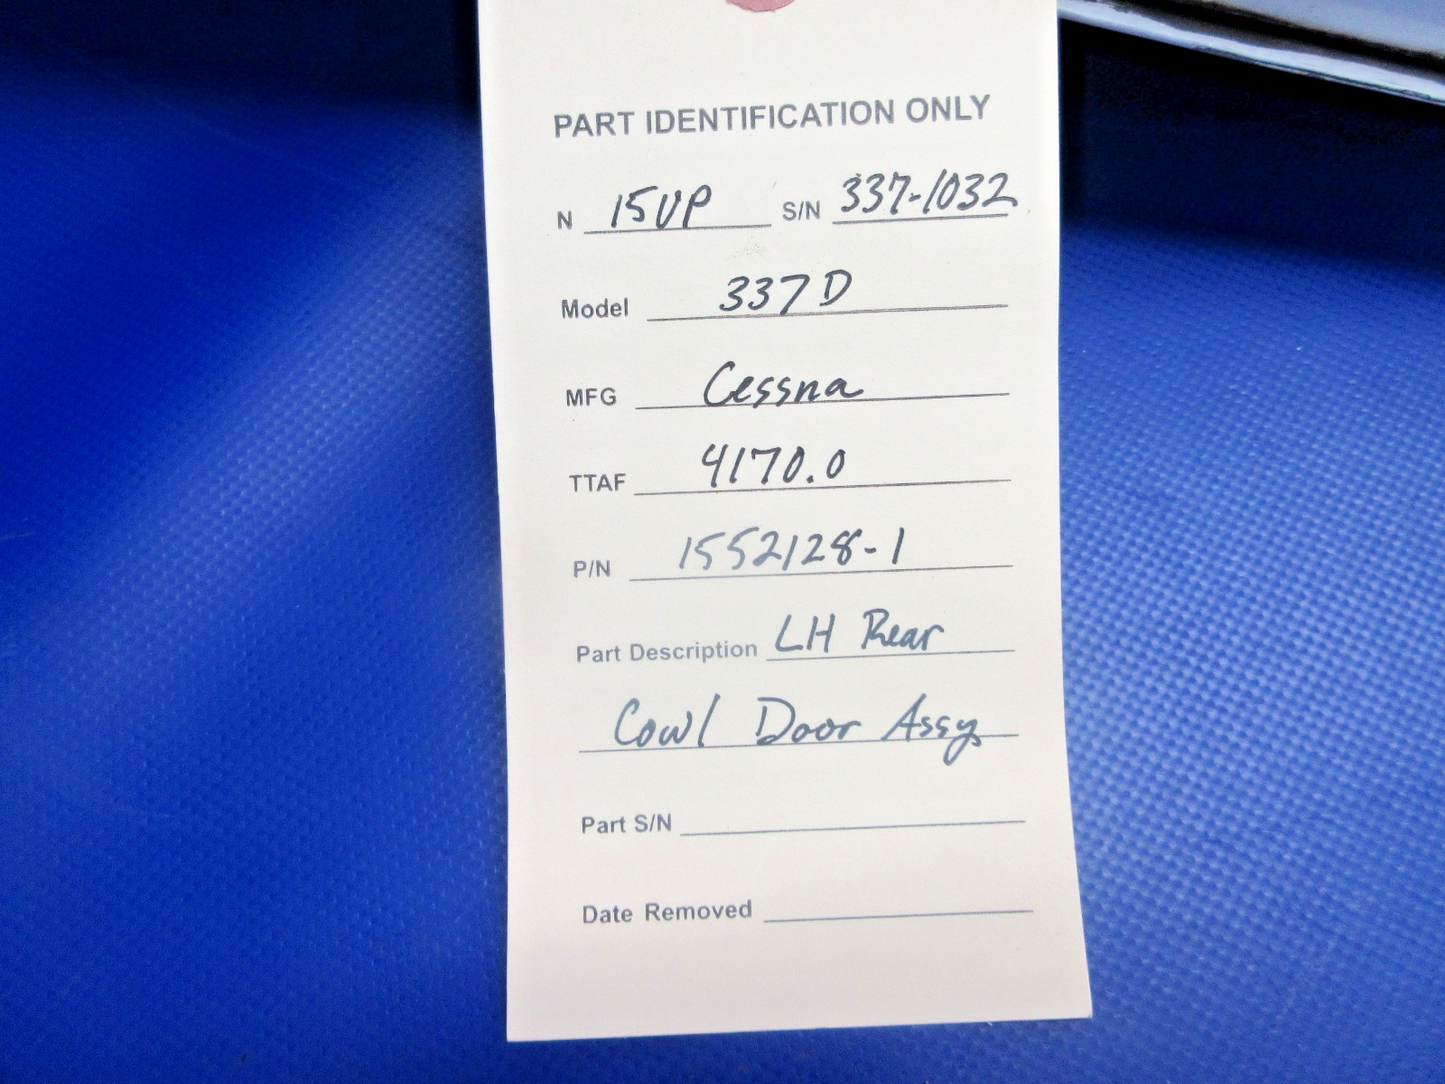 PART IDENTIFICATION ONLY
N 15UP S/N 337-1032
Model 337D
MFG Cessna
TTAF 4170.0
P/N 1552128-1
Part Description LH Rear
Cowl Door Assy
Part S/N
Date Removed